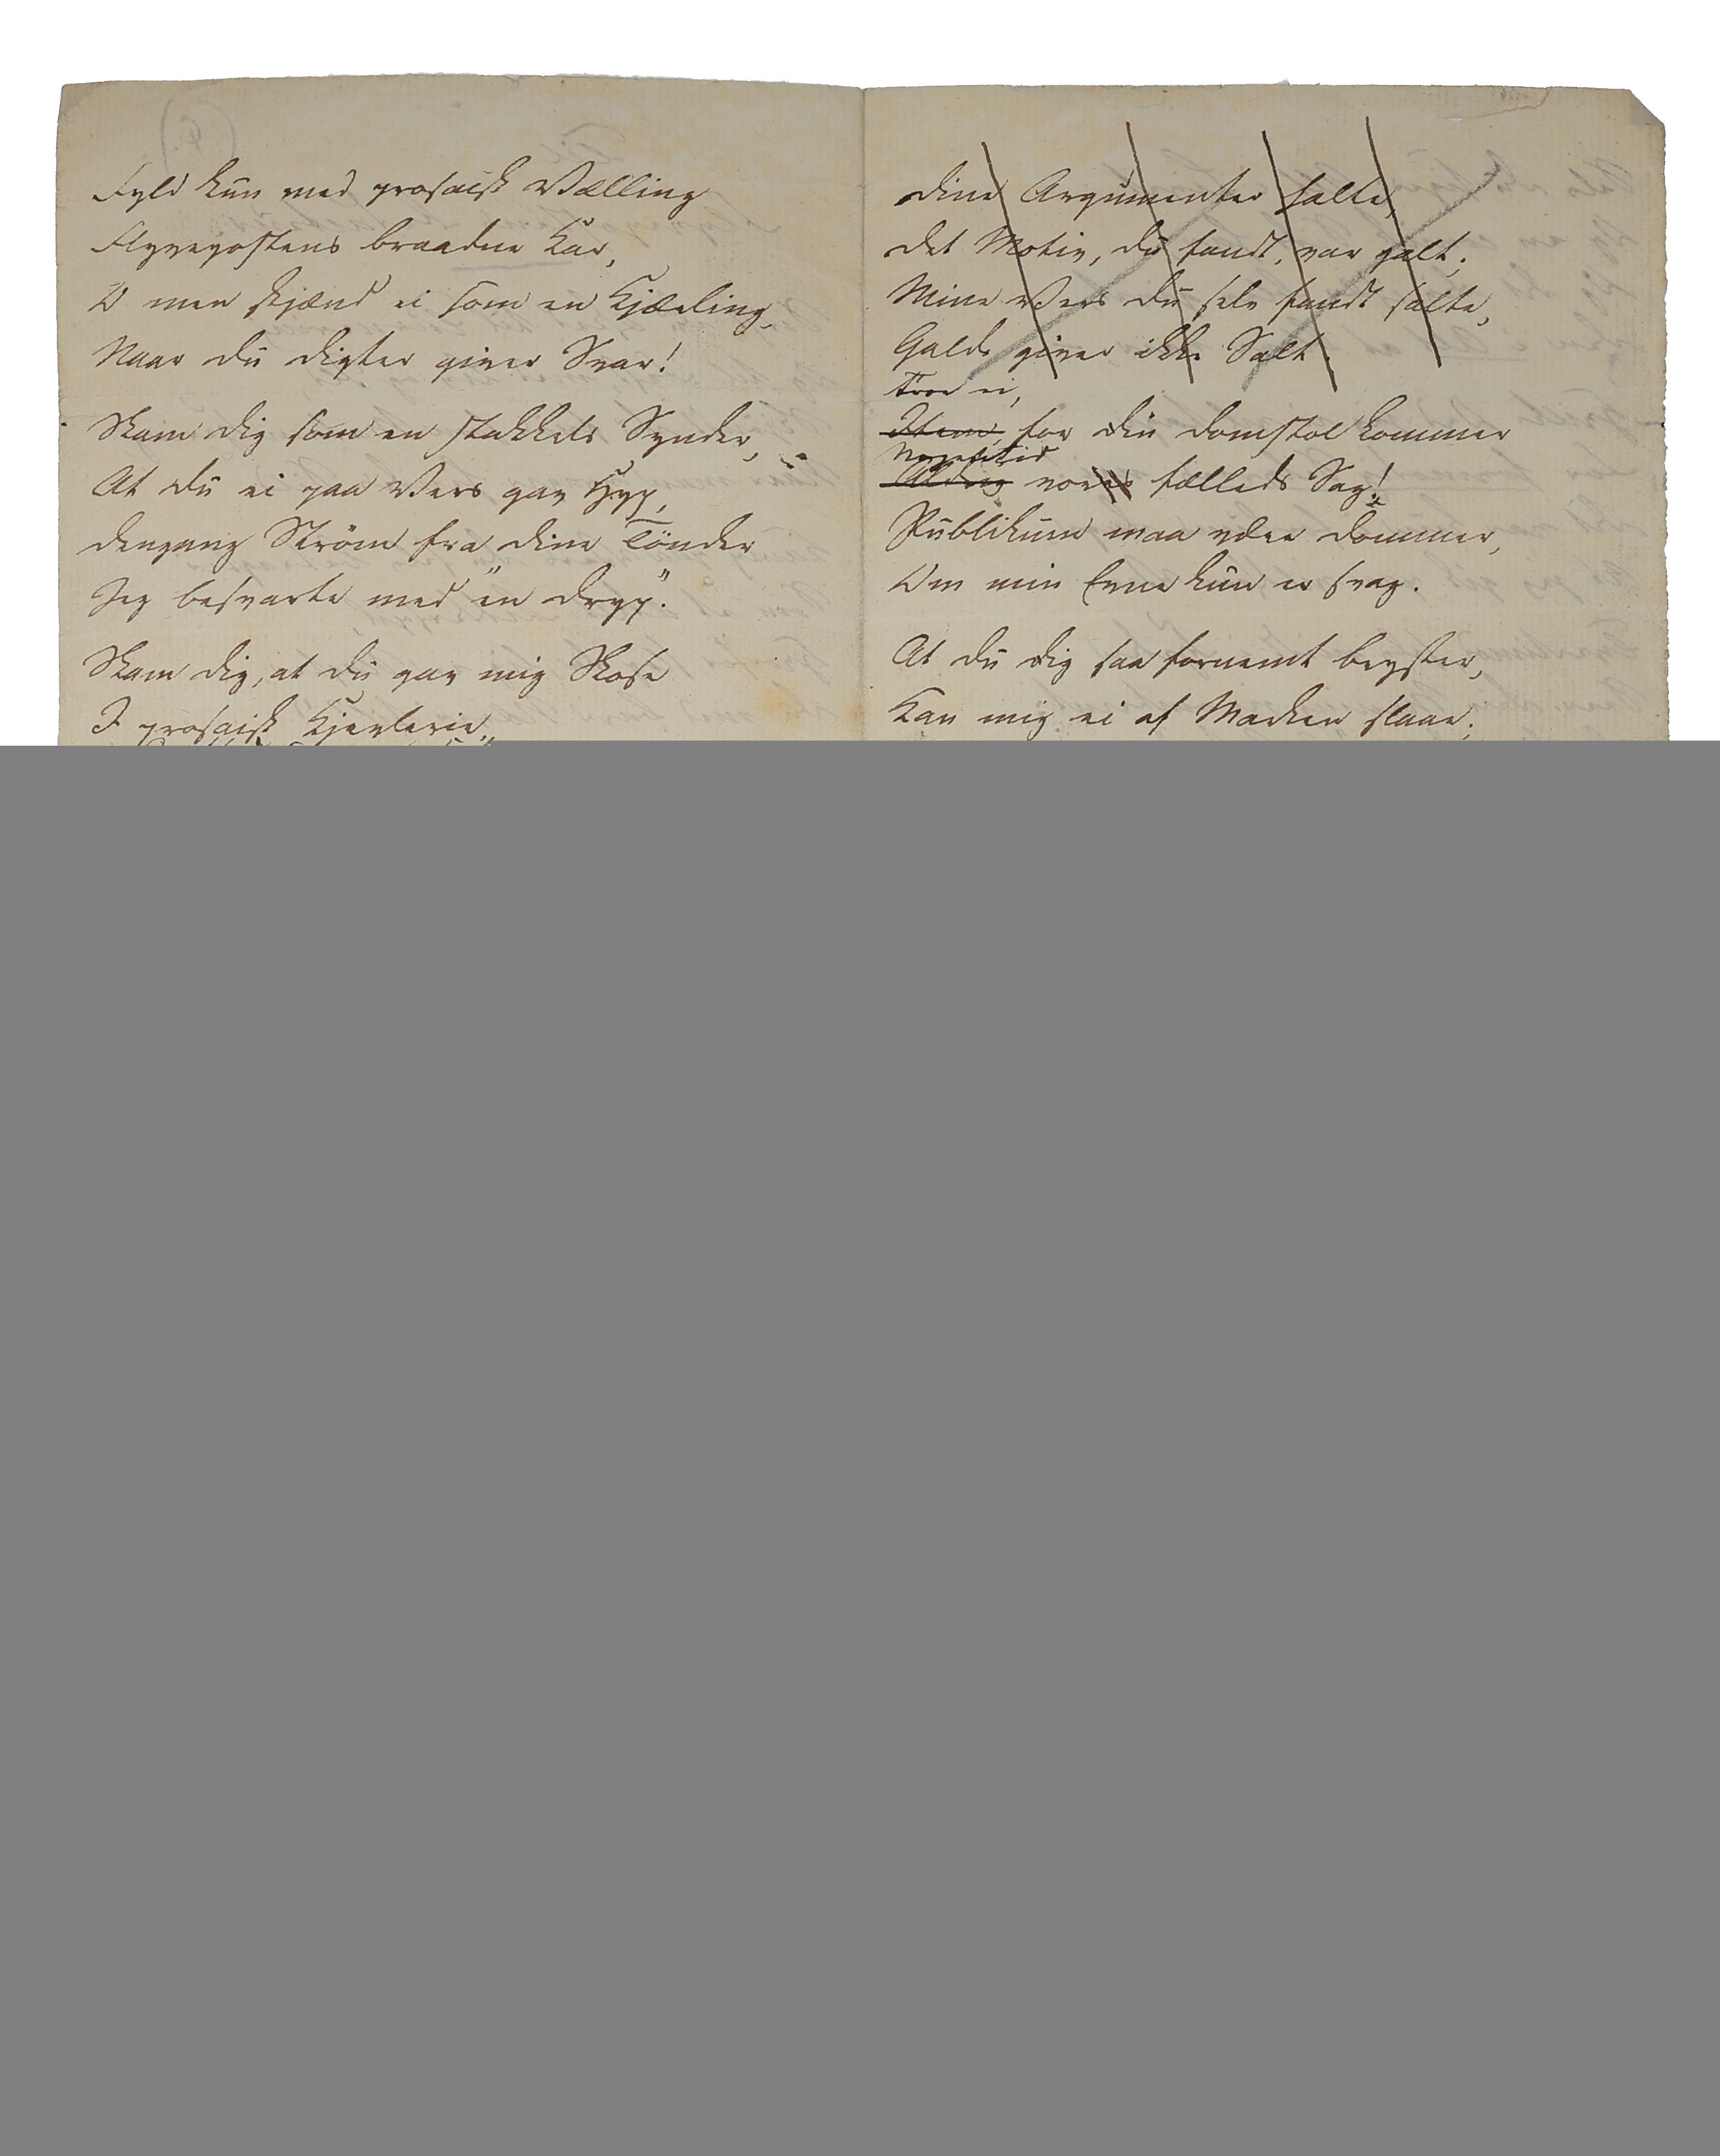 Fyld kun med prosaisk Vælling
Flyvepostens braadne Kar,
O men skjænd ei som en Kjælling,
Naar du Digter giver Svar!
Skam dig som en stakkels Synder,
At du ei paa Vers gav Hyp,
Dengang Strøm fra dine Tönder
Jeg besvarte med "en Dryp".
Skam dig, at du gav mig Skose
I prosaisk Kjevlerie,
Dine Argumenter halte,
Det Motiv, du fandt, var galt;
Mine Vers du selv fandt salte,
Galde giver ikke Salt.
Troe ei,
Item, for din Domstol kommer
Nogensitid
Aldrig vores fælleds Sag!
Publikum maa være Dommer,
Om min Evne kun er svag.
At du dig saa fornemt bryster,
Kan mig ei af Marken slaae;